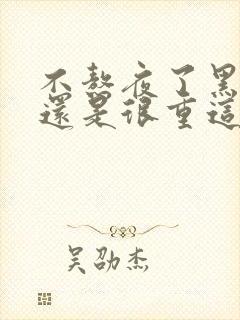 不熬夜了黑
還是很重這
吴劭杰